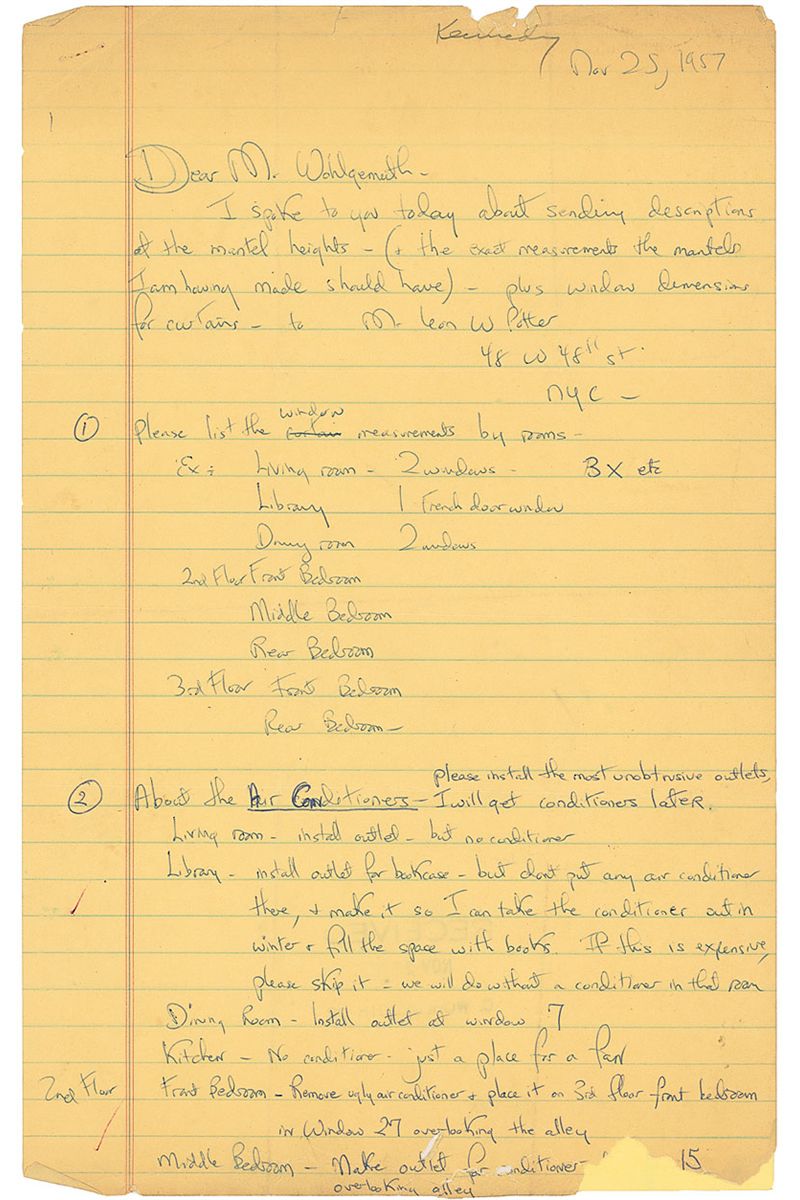 Kennedy
Nov 25, 1957
Dear Mr. Wohlgemuth -
I spoke to you today about sending descriptions
of the mantel heights - (+ the exact measurements the mantels
I am having made should have) - plus window dimensions
for curtains - to Mr. Leon W Potter
48 W 48th st.
NYC -
① please list the window measurements by rooms -
Ex: Living room - 2 windows - 3 X etc
Library 1 French door window
Dining room 2 windows
2nd Floor Front Bedroom
Middle Bedroom
Rear Bedroom
3rd Floor Front Bedroom
Rear Bedroom -
please install the most unobtrusive outlets,
② About the Air Conditioners - I will get conditioners later.
Living room - install outlet - but no conditioner
Library - install outlet for bookcase - but dont put any air conditioner
there, + make it so I can take the conditioner out in
winter + fill the space with books. If this is expensive,
please skip it - we will do without a conditioner in that room
Dining Room - Install outlet at window 7
Kitchen - No conditioner - just a place for a fan
2nd Floor Front Bedroom - Remove ugly air conditioner + place it on 3rd floor front bedroom
in Window 27 overlooking the alley
Middle Bedroom - Make outlet for conditioner - 15
overlooking alley